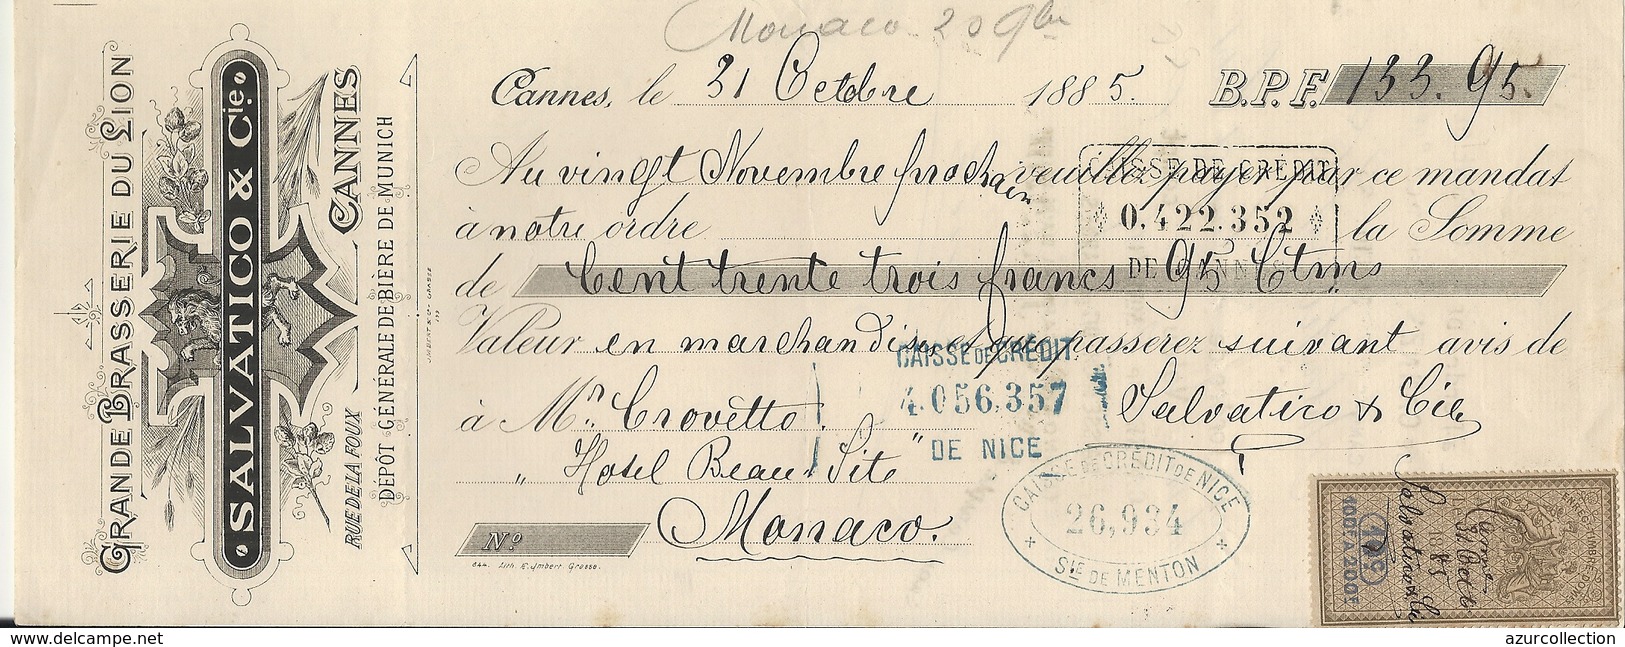 Monaco 20 9bre
GRANDE BRASSERIE DU LION
SALVATICO & Cie.
CANNES
RUE DE LA FOUX
DÉPÔT GÉNÉRALE DE BIÈRE DE MUNICH
Cannes, le 31 Octobre 1885. B.P.F. 133.95.
Au vingt Novembre prochain veuillez payer par ce mandat
à notre ordre la Somme
de Cent trente trois francs 95 Ctms
Valeur en marchandises que passerez suivant avis de
à Mr. Crovetto. Salvatico & Cie
" Hotel Beau Site "
Monaco.
No.
644. Lith. E. Imbert Grasse.
CAISSE DE CRÉDIT
0.422.352
DE CANNES
CAISSE DE CRÉDIT.
4.056.357
DE NICE
CAISSE DE CRÉDIT DE NICE
26,934
Sle DE MENTON
Cannes
31 Octob
1885
Salvatico & Cie
100F A 200F
azurcollection